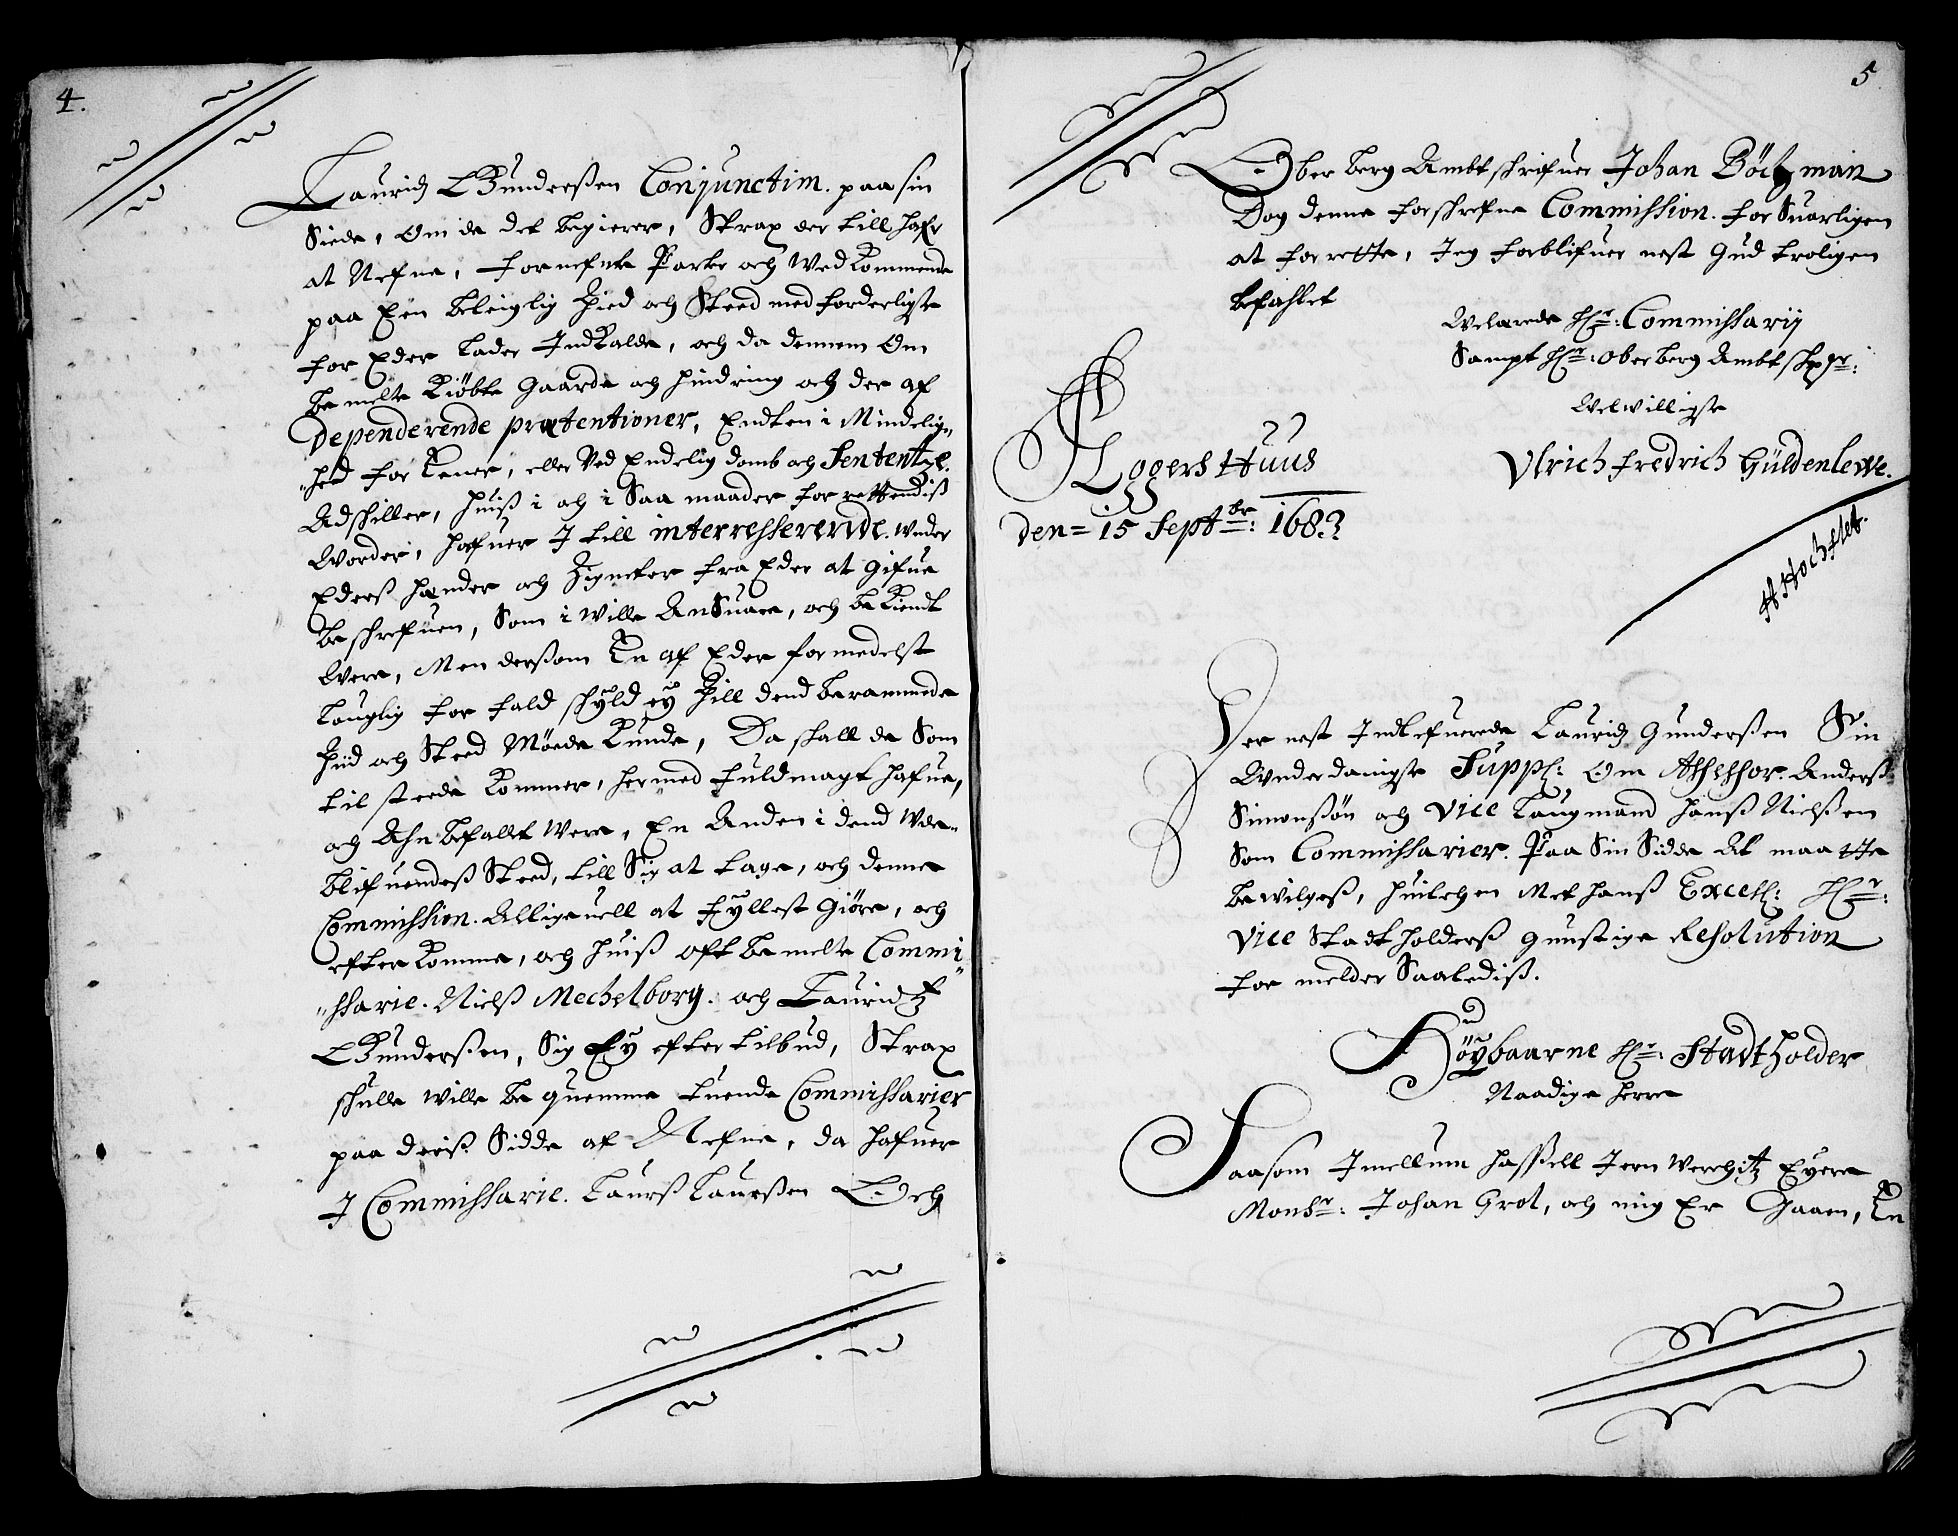 4.
Lauridz Gunderßen Conjunctim. paa sin
Siede, Om de det begierer, Strax der till hafr
at Nefne, fornefnte Parter och Wed Kommende
paa Een beleiglig Tied och Steed med forderligste
for Eder lader Indkalde, och da dennem Om
be melte Kiøbte Gaarde og hindring och der af
Dependerende prætentioner, Endten i Mindelig„
„hed for Eener, eller Ved Endelig domb och Sententze.
Adskiller, huiß i och i Saa maader for rettendiß
Worder, hafuer I till interresserende. Under
Eders hænder och Zigneter fra Eder at gifue
be skrefuen, Som i wille AnSuare, och be Kiendt
Were, Men dersom En af Eder formedelst
Lauglig for fald skyld ey Till dend berammede
Tiid och Steed Møede Kunde, Da skall de Som
til steede Kommer, hermed fuldmagt hafue,
och Ahn befallt Were, En Anden i dend Ude„
blifuendeß Steed, till Sig at tage, och denne
Commission. Alligeuell at fyllest Giøre, och
efter Komme, och huiß oft be melte Commi„
„ssarie. Nielß Mechelborg. och Lauridtz
Gunderßen, Sig Ey efter tilbud, Strax
skulle wille be quemme tuende Commissarier
paa deriß Sidde af Nefne, da hafuer
I Commissarie. Laurß Laurßen Och
5
Ober berg Ambtskrifuer Johan Böckman
Dog denne forskrefne Commission. for Suarligen
at forrette, Jeg forblifuer nest Gud troligen
befahlet
Welærede Hr: Commissarij
Sampt Hr: Ober berg Ambt skr:
Velwilligste
Aggers Huus
Ulrich fredrich Güldenlewe.
den = 15 Septbr: 1683
H Hochstet.
Der nest Indlefuerede Lauridz Gunderßen Sin
Underdanigste Suppl: Om Assessor. Anders
Simonßøn och Vice Laugmand Hanß Nielßen
Som Commissarier. Paa Sin Sidde At maatte
bewilgeß, huilchen Met hanß Excell: Hr:
Vice Stadtholderß gunstige Resolution
for melder Saalediß.
Höÿbaarne Hr: Stadtholder
Naadige Herre
Saasom Imellum Hassell Jern Werchtz Eyere
Monsr: Johan Grot, och mig Er Gaaen, En